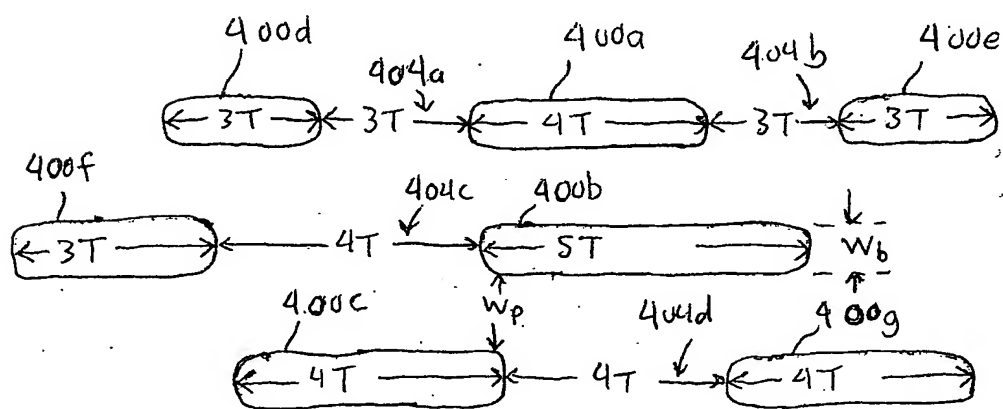 400d 400a 400e
404a 404b
3T 3T 4T 3T 3T
400f 404c 400b
3T 4T 5T Wb
400c Wp 404d 400g
4T 4T 4T